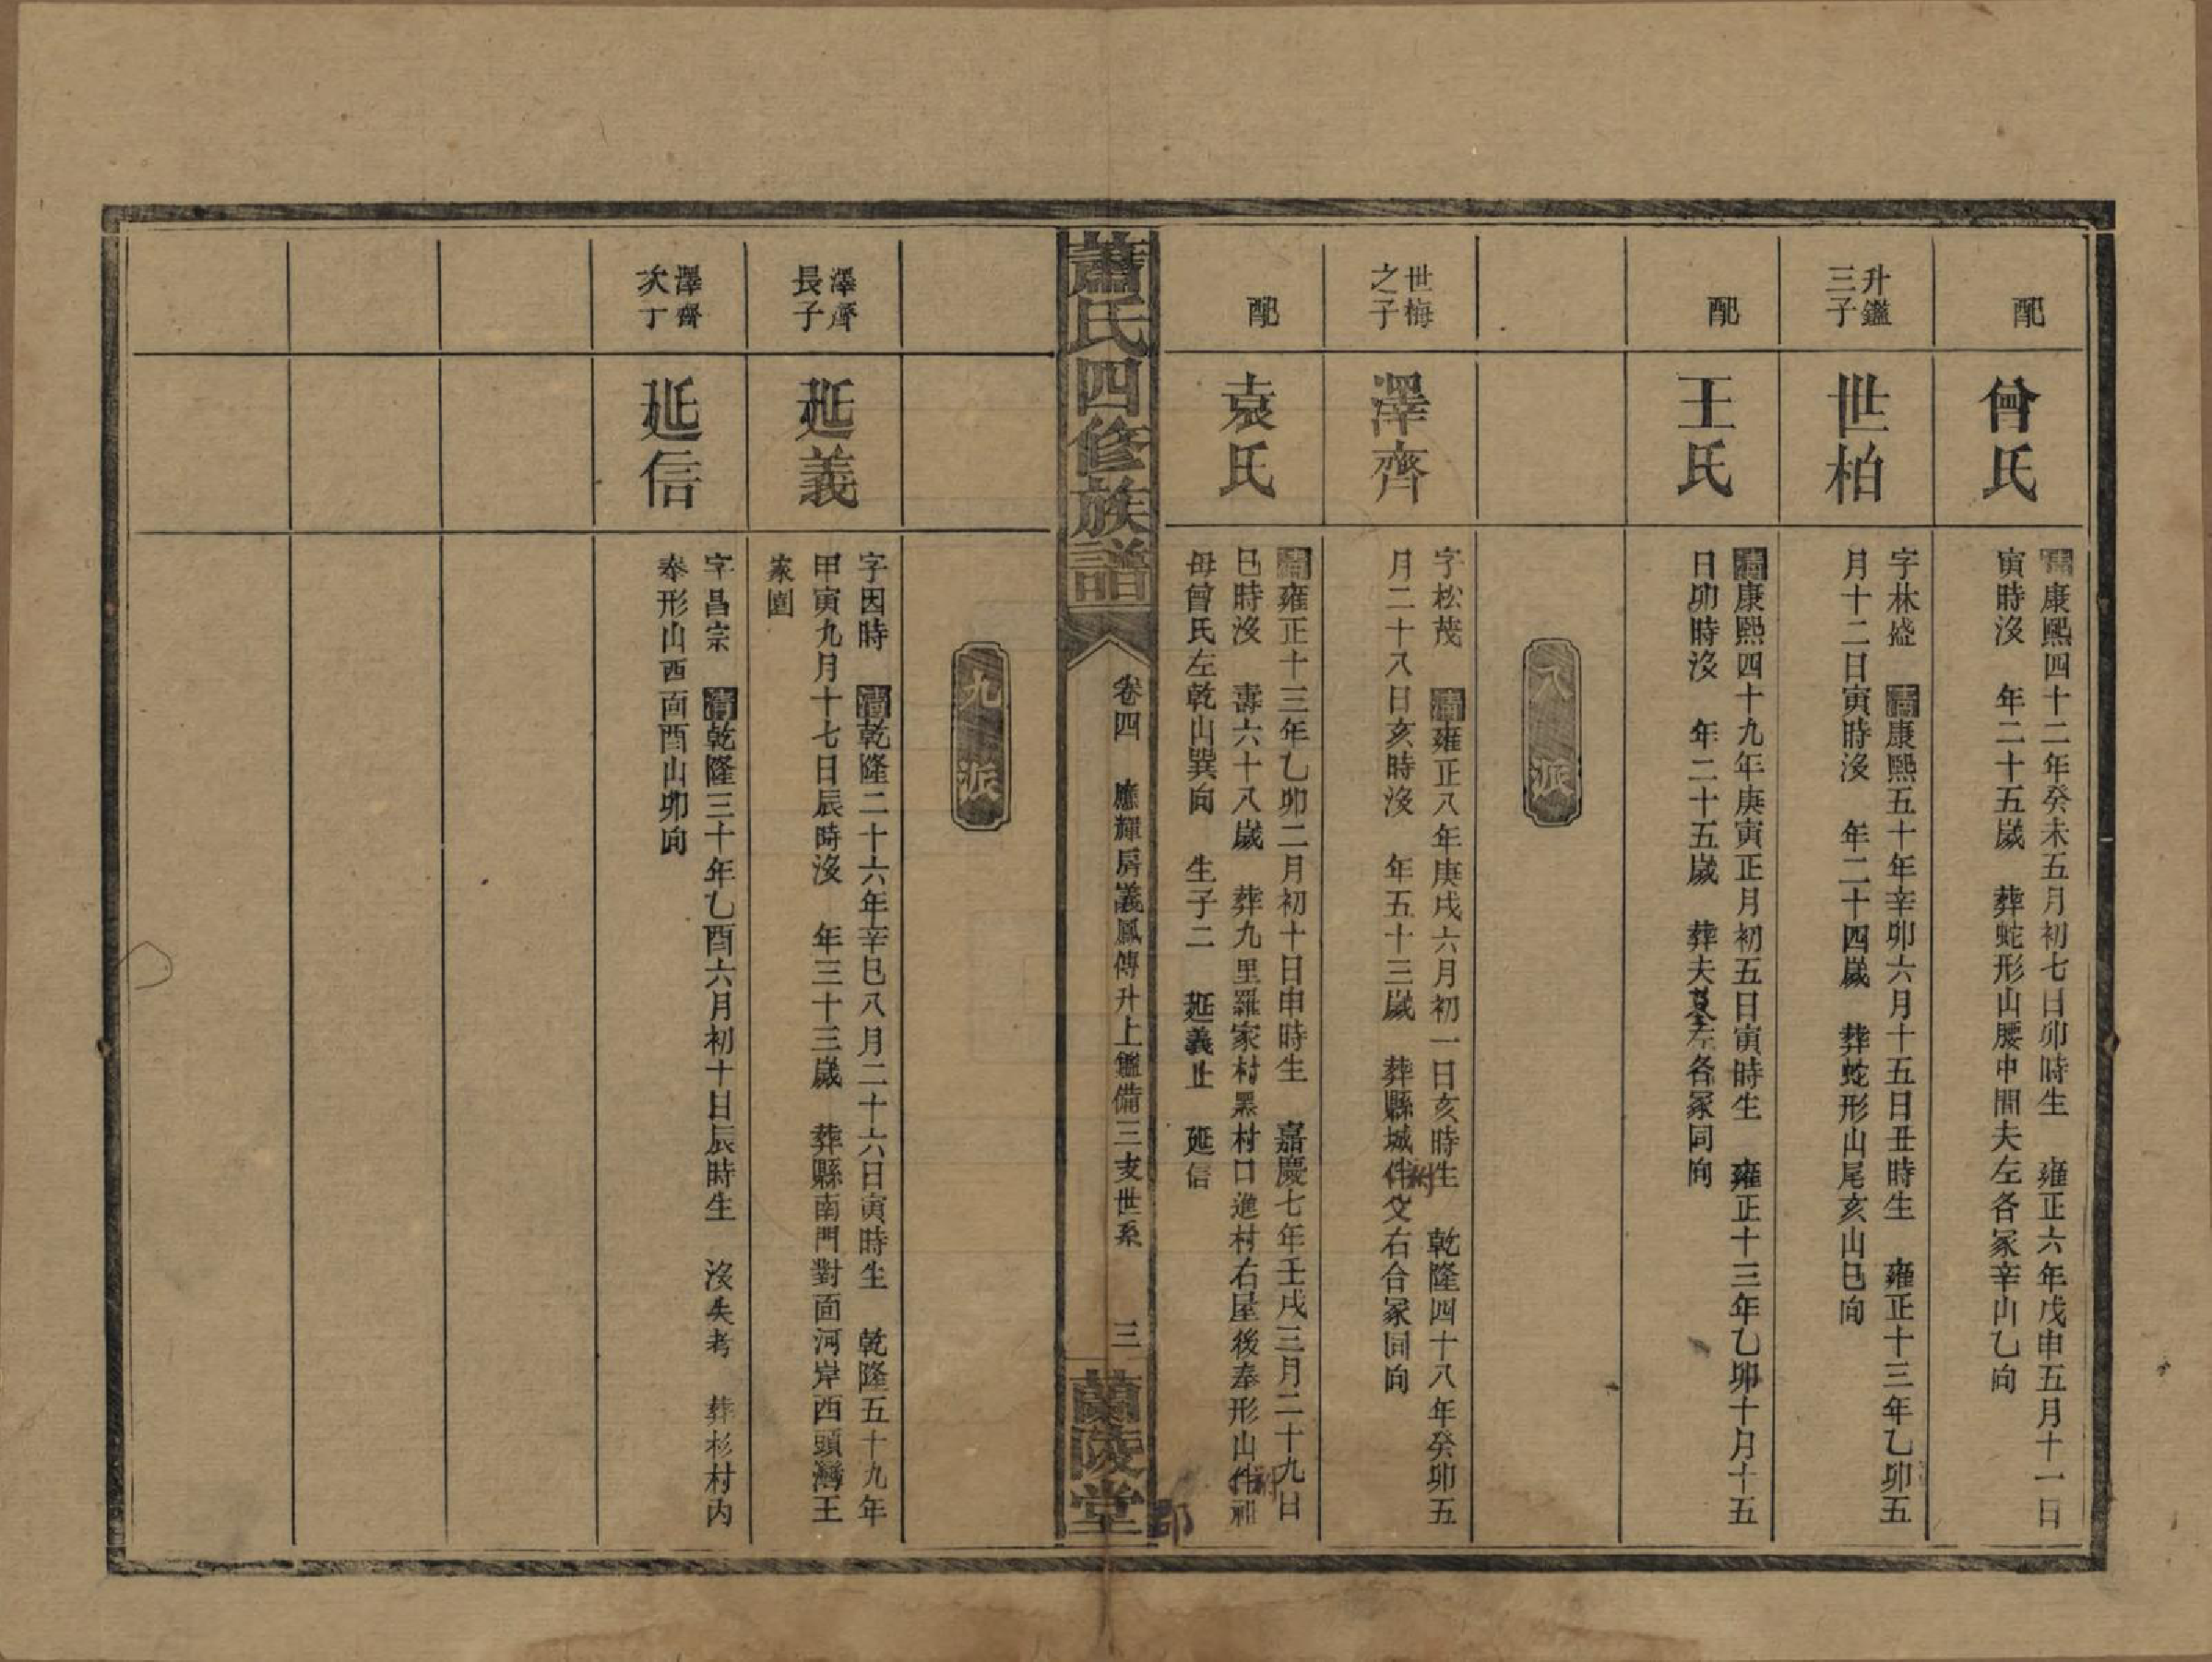 配
曾氏
清康熙四十二年癸未五月初七日卯時生　雍正六年戊申五月十一日
寅時沒　年二十五歲　葬蛇形山腰中間夫左各冢辛山乙向
升鑑
三子
世柏
字林盛　清康熙五十年辛卯六月十五日丑時生　雍正十三年乙卯五
月十二日寅時沒　年二十四歲　葬蛇形山尾亥山巳向
配
王氏
清康熙四十九年庚寅正月初五日寅時生　雍正十三年乙卯十月十五
日卯時沒　年二十五歲　葬夫墓左各冢同向
八派
世梅
之子
澤齊
字松茂　清雍正八年庚戌六月初一日亥時生　乾隆四十八年癸卯五
月二十八日亥時沒　年五十三歲　葬縣城伴父右合冢同向
附
配
袁氏
清雍正十三年乙卯二月初十日申時生　嘉慶七年壬戌三月二十九日
巳時沒　壽六十八歲　葬九里羅家村黑村口進村右屋後奉形山伴祖
附
母曾氏左乾山巽向　生子二　延義止　延信
蕭氏四修族譜
卷四　應輝房義鳳傳升上鑑備三支世系　三
蘭陵堂
九派
澤齊
長子
延義
字因時　清乾隆二十六年辛巳八月二十六日寅時生　乾隆五十九年
甲寅九月十七日辰時沒　年三十三歲　葬縣南門對面河岸西頭灣王
家園
澤齊
次丁
延信
字昌宗　清乾隆三十年乙酉六月初十日辰時生　沒失考　葬杉村內
奉形山西面酉山卯向